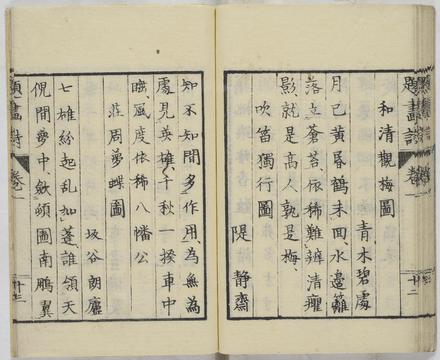 題畫詩 卷 十二
和清觀梅圖
青木碧處
月已黃昏鶴未回、水邊籬
落立蒼苔、依稀難辨清癯
影、就是高人孰是梅、
吹笛獨行圖
堤 靜齋
知不知間多作用、為無為
處見英雄、千秋一揆車中
風度依稀八幡公
莊周夢蝶圖
坂谷朗廬
七雄紛起乱如蓬、誰領天
倪間夢中、圖南鵬翼
題畫詩 卷 十三